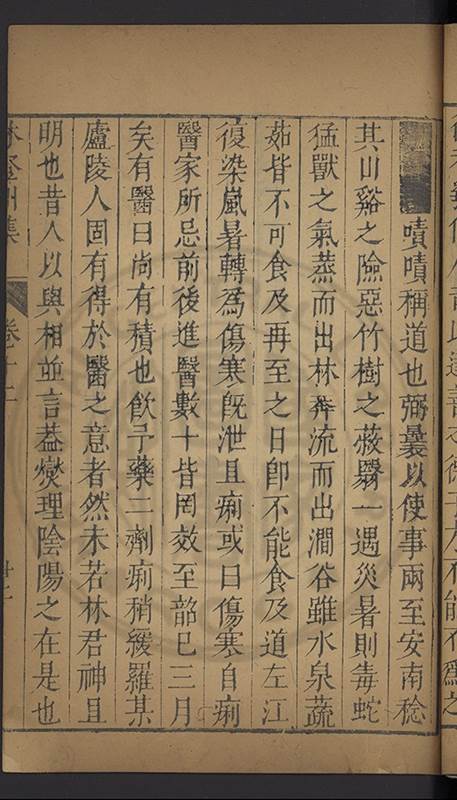 嘖嘖稱道也弼曩以使事兩至安南稔
其山谿之險惡竹樹之蔽翳一遇炎暑則毒蛇
猛獸之氣蒸而出林奔流而出澗谷雖水泉蔬
茹皆不可食及再至之日卽不能食及道左江
復染嵐暑轉爲傷寒旣泄且痢或曰傷寒自痢
醫家所忌前後進醫數十皆罔效至韶已三月
矣有醫曰尚有積也飮予藥二劑痢稍緩羅某
廬陵人固有得於醫之意者然未若林君神且
明也昔人以與相並言葢燮理陰陽之在是也
林登州集 卷十二